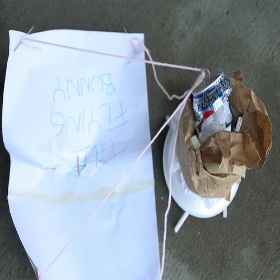 THE
FLYING
BUNNY